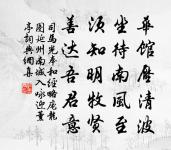 華館詹清波
坐待南風至
須知明牧賢
善達吾君意
司馬光奉和經略庞龍
圖延州南城八咏迎薰
亭詞典網集